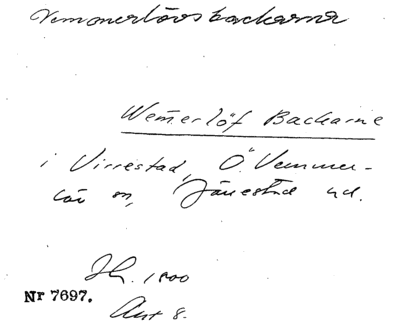 Vemmerlövsbackarna
Wem̄erlöf Backarne
i Virrestad, Ö. Vemmer-
löv sn, Järrestad hd.
Sk. 1800
Nr 7697.
Akt 8.